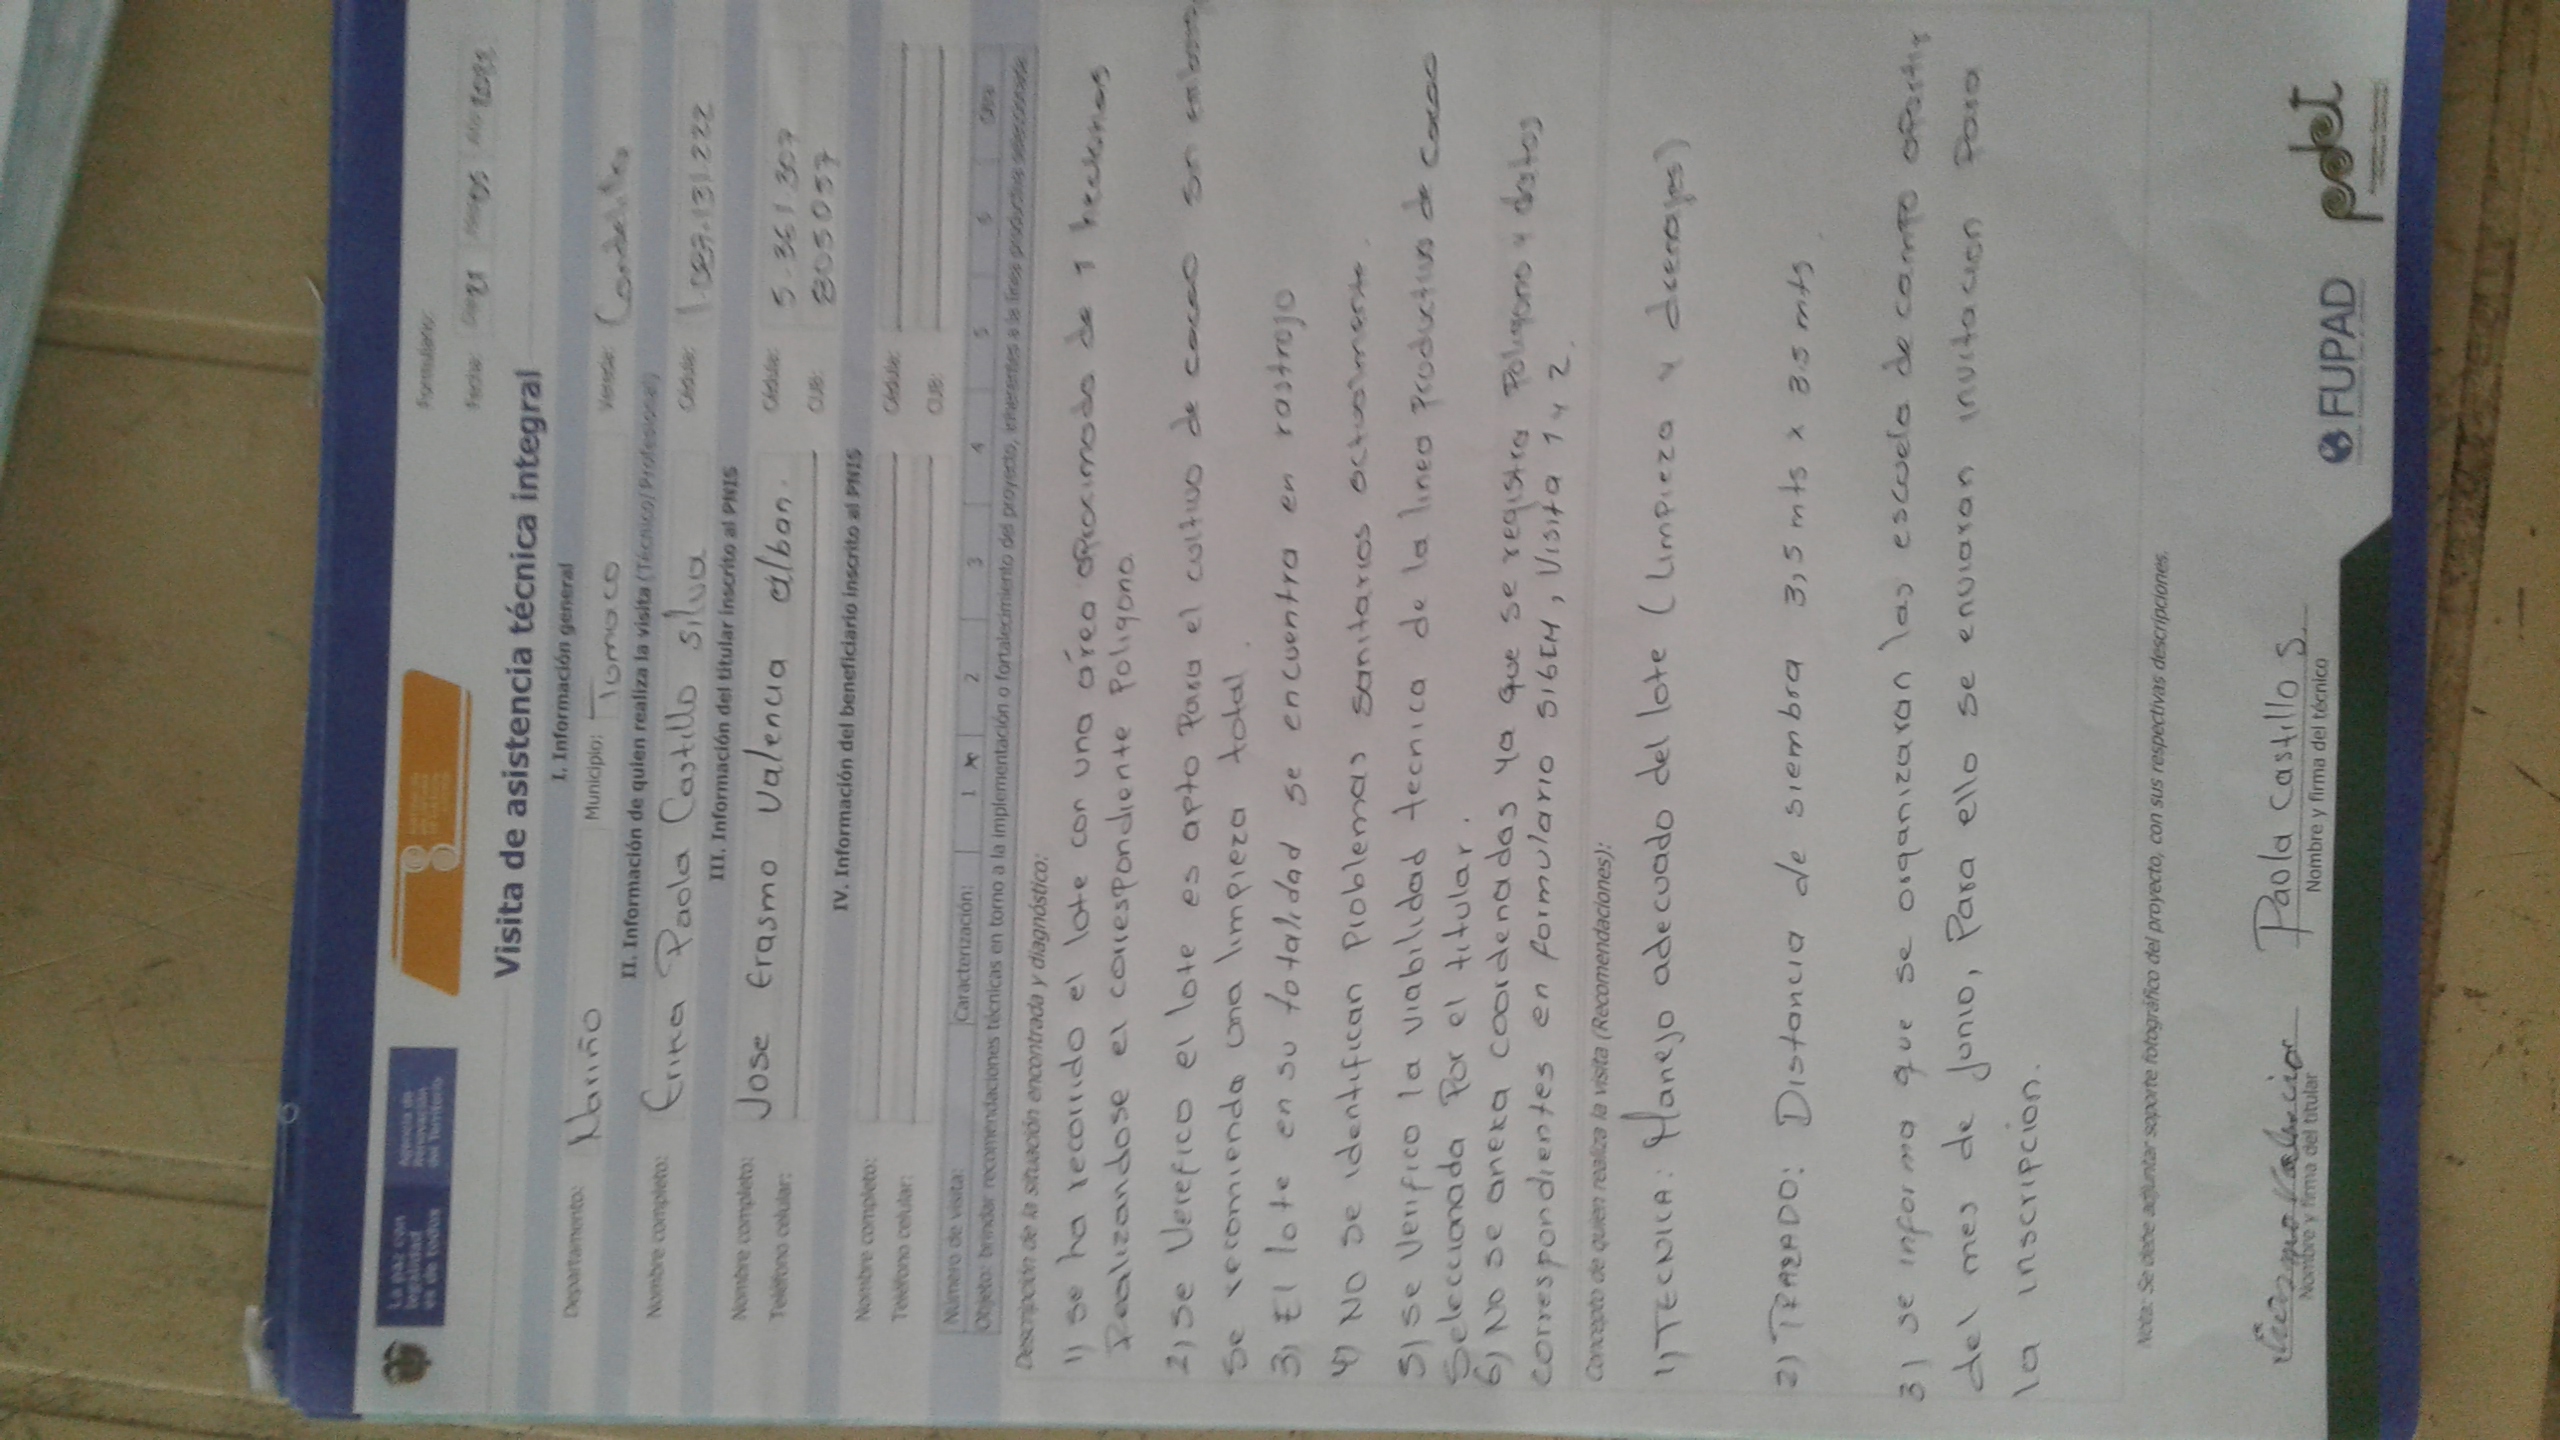 La paz con
legalidad
es de todos
Agencia de
Renovación
del Territorio
Formulario:
Visita de asistencia técnica integral
Fecha: Día 21 Mes 05 Año 2021
I. Información general
Departamento: Nariño Municipio: Tumaco Vereda:
II. Información de quien realiza la visita (Técnico/Profesional)
Nombre completo: Erika Paola Castillo Silva Cédula: 1.087.131.222
III. Información del titular inscrito al PNIS
Nombre completo: Jose Erasmo Valencia alban. Cédula: 5.361.307
Teléfono celular: CUB: 805057
IV. Información del beneficiario inscrito al PNIS
Nombre completo: Cédula:
Teléfono celular: CUB:
Número de visita: Caracterización: 1 x 2 3 4 5 6 Otra
Objeto: brindar recomendaciones técnicas en torno a la implementación o fortalecimiento del proyecto, inherentes a la línea productiva seleccionada.
Descripción de la situación encontrada y diagnóstico:
1) se ha recorrido el lote con una área aproximada de 1 hectareas
Realizandose el correspondiente Poligono.
2) se Verefico el lote es apto Para el cultivo de cacao sin embargo
se recomienda una limpieza total.
3) El lote en su totalidad se encuentra en rastrojo
4) No se identifican Problemas sanitarios actualmente.
5) se Verifico la viabilidad tecnica de la linea Productiva de cacao
Seleccionada Por el titular.
6) No se anexa coordenadas ya que se registra Poligono y datos
correspondientes en formulario SIGCH, Visita 1 y 2.
Concepto de quien realiza la visita (Recomendaciones):
1) TECNICA: Manejo adecuado del lote (Limpieza y drenajes)
2) TRAZADO: Distancia de siembra 3,5 mts x 3.5 mts.
3) se informa que se organizaran las escuela de campo apartir
del mes de Junio, Para ello se enviaran invitacion Para
la inscripcion.
Nota: Se debe adjuntar soporte fotográfico del proyecto, con sus respectivas descripciones.
Erasmo Valencia Paola Castillo S.
Nombre y firma del titular Nombre y firma del técnico
FUPAD pdet